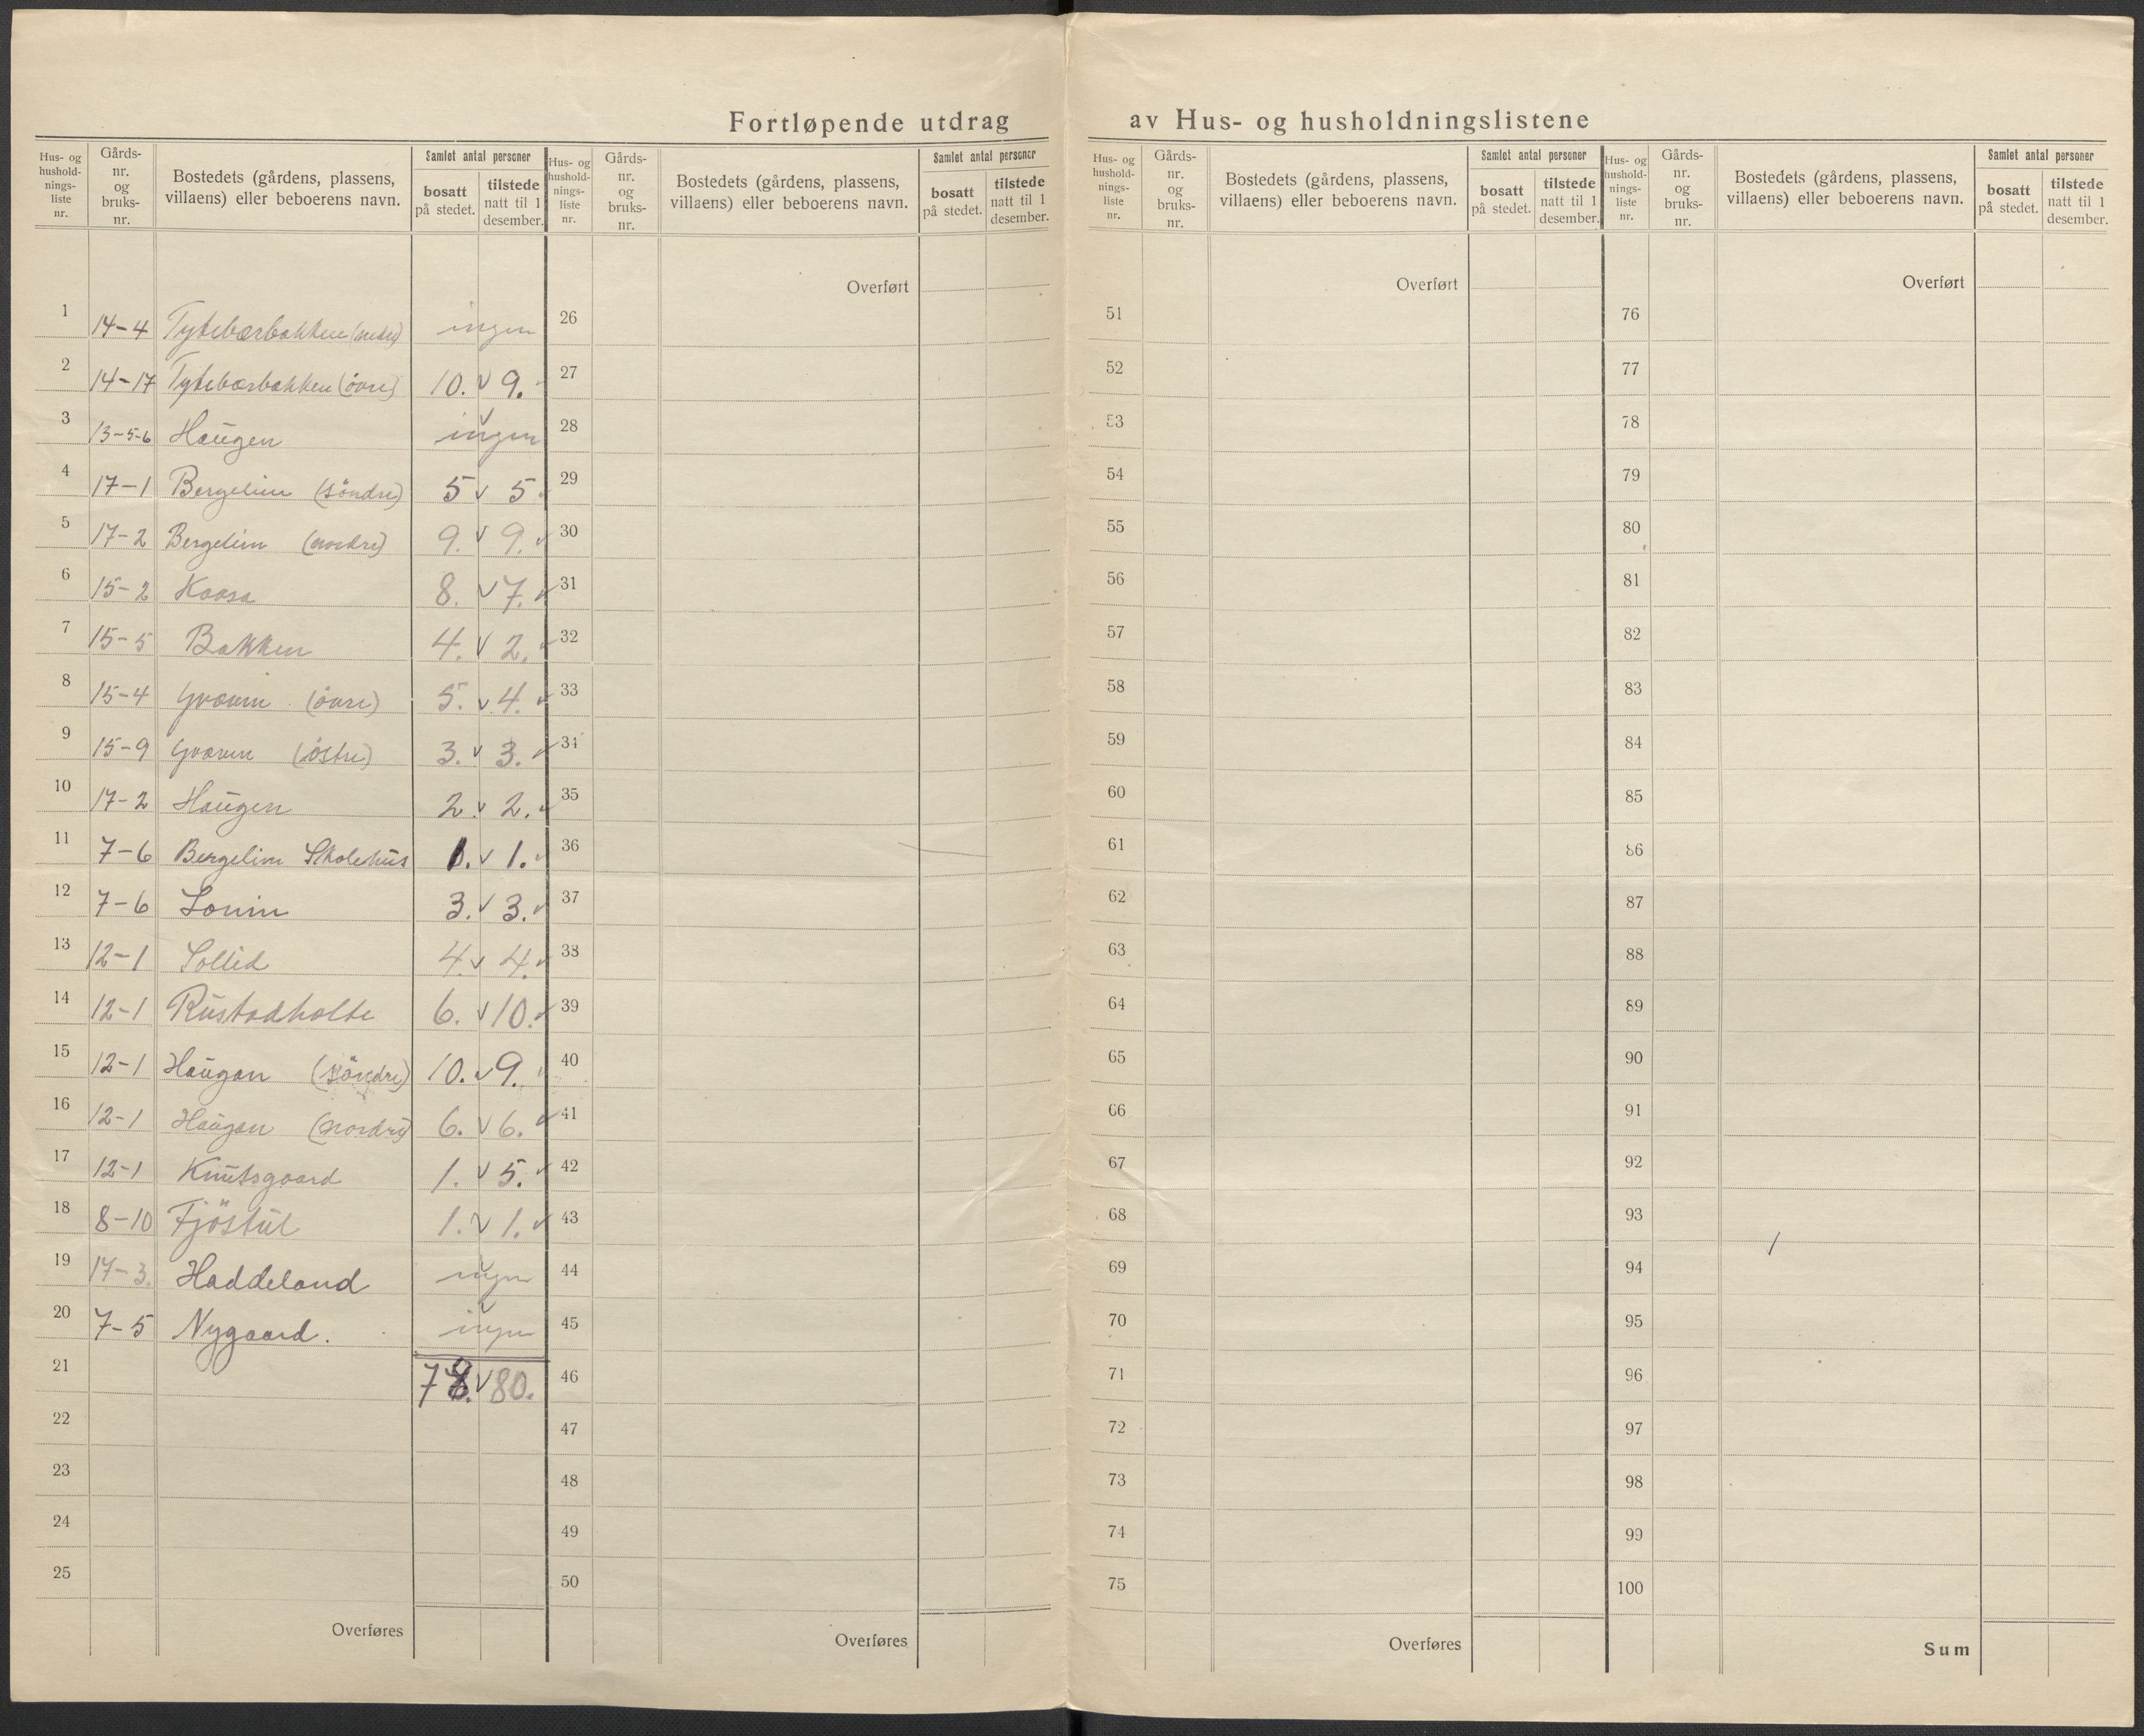 Fortløpende utdrag av Hus- og husholdningslistene
Hus- og hushold-nings-liste nr. | Gårds-nr. og bruks-nr. | Bostedets (gårdens, plassens, villaens) eller beboerens navn. | Samlet antal personer | bosatt på stedet. | tilstede natt til 1 desember.
Hus- og hushold-nings-liste nr. | Gårds-nr. og bruks-nr. | Bostedets (gårdens, plassens, villaens) eller beboerens navn. | Samlet antal personer | bosatt på stedet. | tilstede natt til 1 desember.
Hus- og hushold-nings-liste nr. | Gårds-nr. og bruks-nr. | Bostedets (gårdens, plassens, villaens) eller beboerens navn. | Samlet antal personer | bosatt på stedet. | tilstede natt til 1 desember.
Hus- og hushold-nings-liste nr. | Gårds-nr. og bruks-nr. | Bostedets (gårdens, plassens, villaens) eller beboerens navn. | Samlet antal personer | bosatt på stedet. | tilstede natt til 1 desember.
Overført Overført Overført
1 14-4 Tytebærbakken (nedre) ingen 26 51 76
2 14-17 Tytebærbakken (övre) 10. v 9. 27 52 77
3 13-5-6 Haugen ingen 28 53 78
4 17-1 Bergelim (söndre) 5 v 5 29 54 79
5 17-2 Bergelim (nordre) 9. v 9. 30 55 80
6 15-2 Kaasa 8. v 7. 31 56 81
7 15-5 Bakken 4. v 2. 32 57 82
8 15-4 Gvavin (övre) 5. v 4. 33 58 83
9 15-9 (östre) 3. v 3. 34 59 84
10 17-2 Haugen 2. v 2. 35 60 85
11 7-6 Bergelim Skolehus 1. v 1. 36 61 86
12 7-6 Lonin 3. v 3. 37 62 87
13 12-1 Sollid 4. v 4. 38 63 88
14 12-1 Rustadholte 6. v 10. 39 64 89
15 12-1 Haugan (söndre) 10. v 9. 40 65 90
16 12-1 Haugan (nordre) 6. v 6. 41 66 91
17 12-1 Knutsgaard 1. v 5. 42 67 92
18 8-10 Fjöstul 1. v 1. 43 68 93
19 17-3. Haddeland ingen 44 69 94
20 7-5 Nygaard. ingen 45 70 95
21 78. v 80. 46 71 96
22 47 72 97
23 48 73 98
24 49 74 99
25 50 75 100
Overføres Overføres Overføres Sum